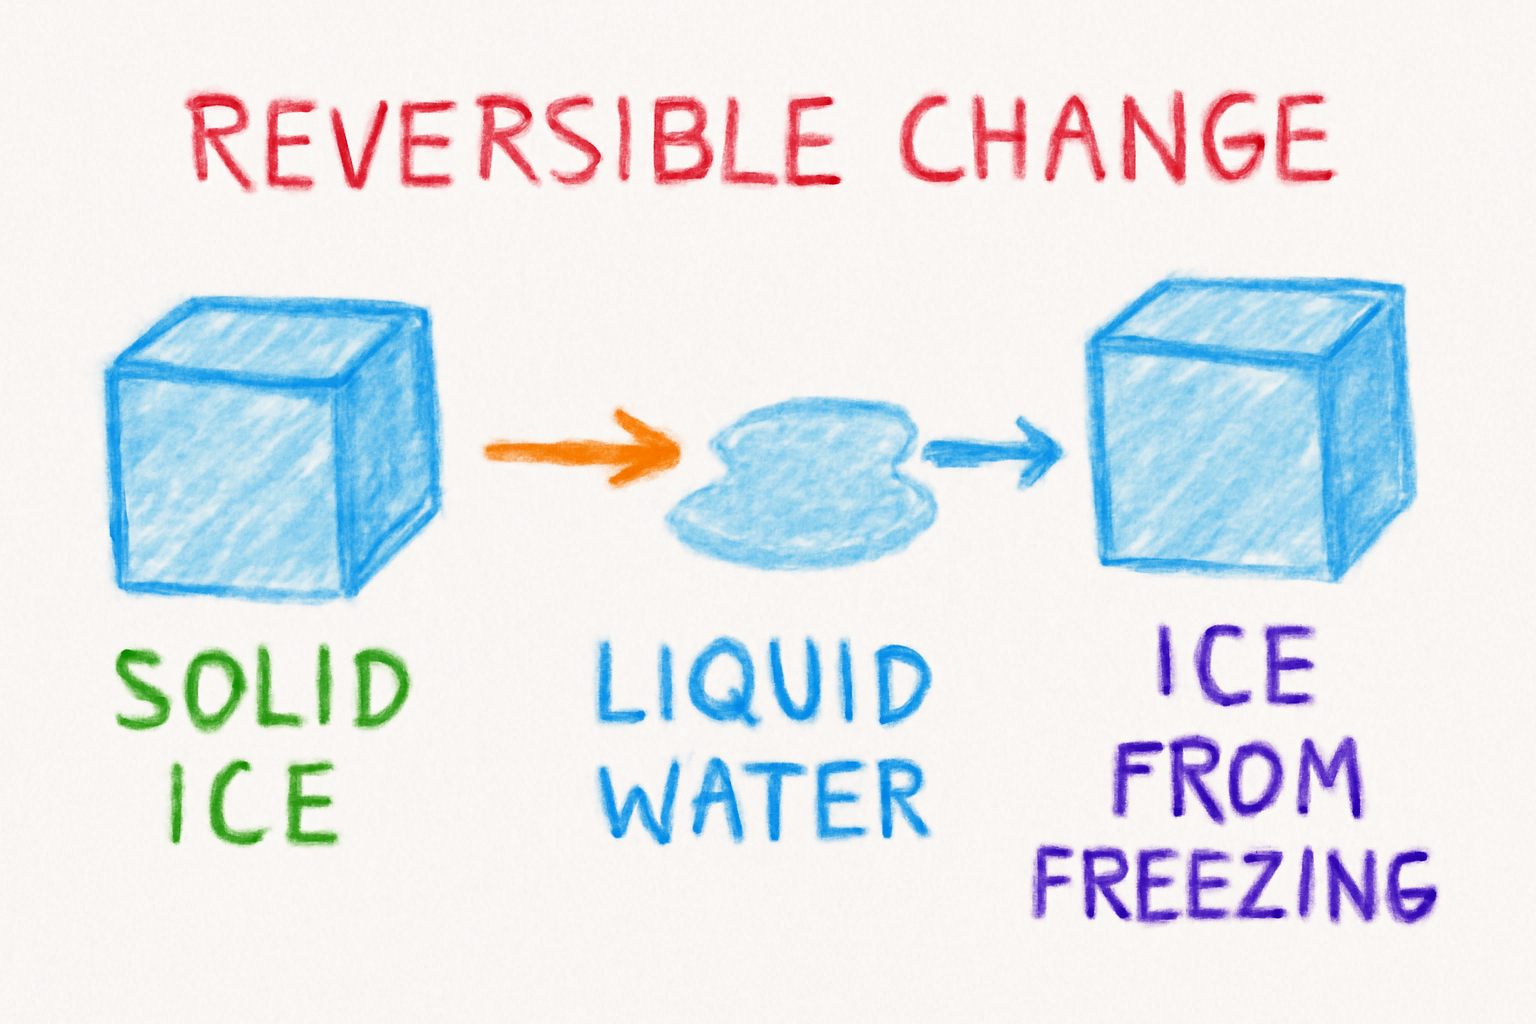 REVERSIBLE CHANGE
SOLID
ICE
LIQUID
WATER
ICE
FROM
FREEZING